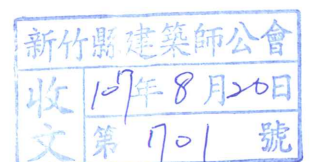 新竹縣建築師公會
收文
107年8月20日
第1701號